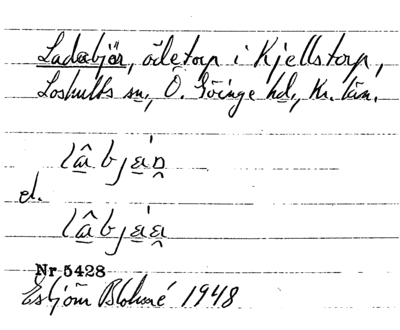 Ladabjär, ödetorp i Kjellstorp,
Loshults sn, Ö. Göinge hd, Kr. län.
el.
Nr 5428
Esbjörn Blomé 1948